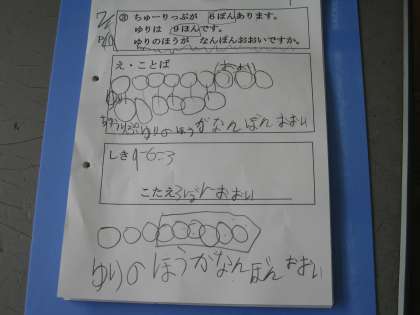 ③ ちゅーりっぷが 6ぽんあります。
ゆりは 9ほんです。
ゆりのほうが なんぼんおおいですか。
え・ことば
ゆり
ちゅうりっぷ ゆりのほうがなんぼんおおい
しき 9-6=3
こたえ 3ぼんおおい
ゆりのほうがなんぼんおおい